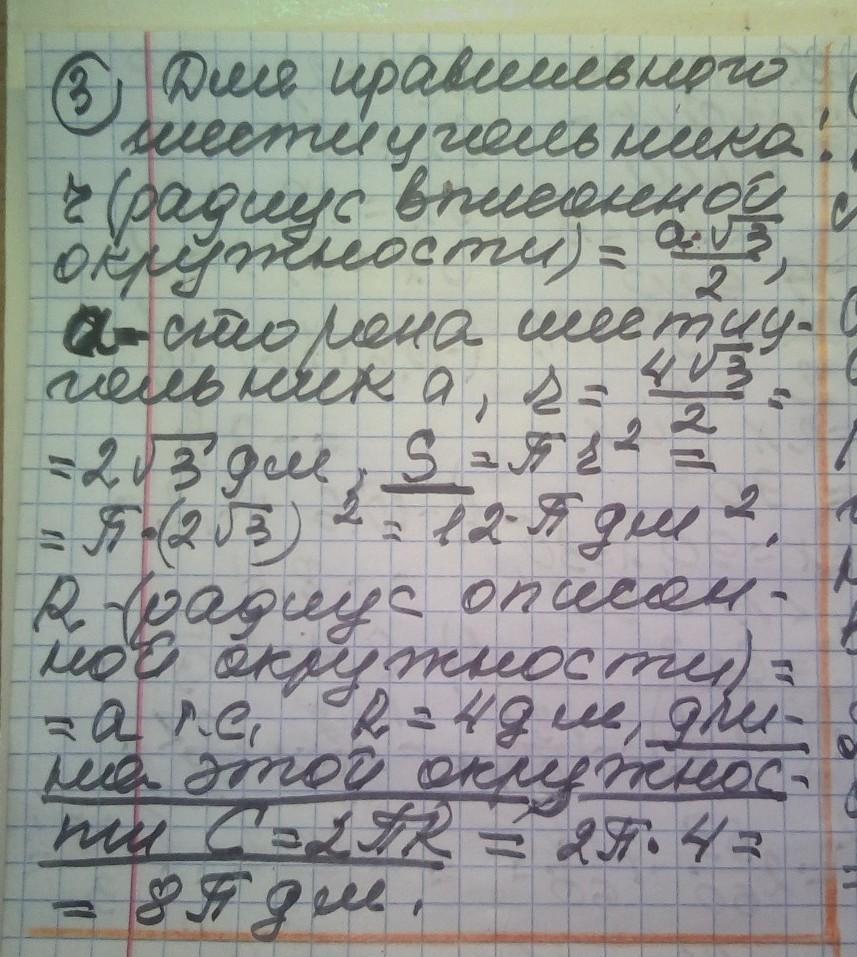 ③ Для правильного
шестиугольника:
r (радиус вписанной
окружности) = a·√3/2,
a - сторона шестиу-
гольника, r = 4√3/2 =
= 2√3 дм, S = πr² =
= π·(2√3)² = 12·π дм².
R - (радиус описан-
ной окружности) =
= a т.е. R = 4 дм, дли-
на этой окружнос-
ти C = 2πR = 2π·4 =
= 8π дм.